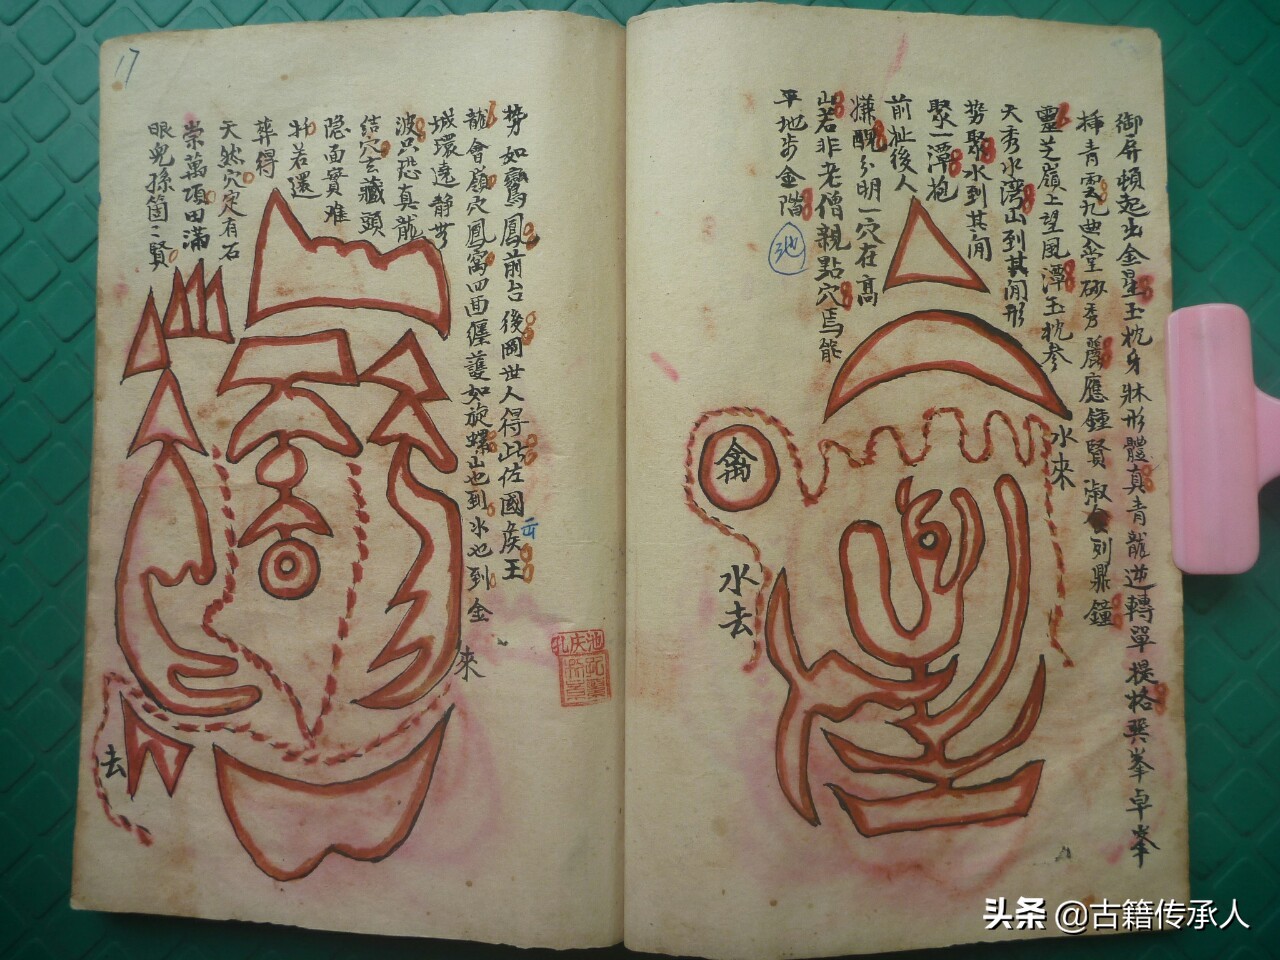 御屏頓起出金星玉枕身牀形體真青龍逆轉單提格巽峯卓峯
插青雲九曲金堂砂秀麗應鍾賢淑食列鼎鐘
靈芝嶺上望風潭玉枕參
天秀水灣山到其間形
勢聚水到其間
聚一潭抱
前扯後人
嫌醜分明一穴在高
山若非老僧親點穴焉能
平地步金階
池
水來
禽
水去
17
勢如鸞鳳前台後岡世人得此佐國侯王
龍會嶺穴鳳窩四面纏護如旋螺山也到水也到金
城環遶靜無
波只恐真龍
結穴玄藏頭
隐面實难
扦若還
葬得
天然穴定有石
崇萬項田滿
眼兒孫箇〻賢
來
去
池庆孔
头条 @古籍传承人